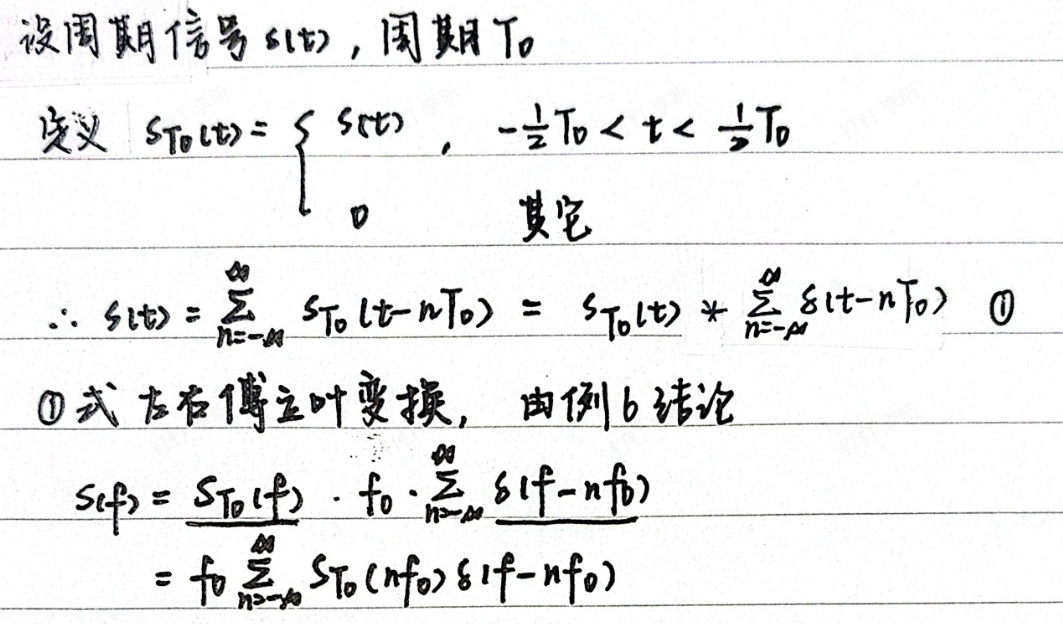 设周期信号 s(t), 周期 T₀
定义 s_T₀(t) = { s(t) , -½T₀ < t < ½T₀
0 其它
∴ s(t) = ∑_{n=-∞}^{∞} s_T₀(t-nT₀) = s_T₀(t) * ∑_{n=-∞}^{∞} δ(t-nT₀) ①
①式 左右傅立叶变换, 由例6结论
S(f) = S_T₀(f) · f₀ · ∑_{n=-∞}^{∞} δ(f-nf₀)
= f₀ ∑_{n=-∞}^{∞} S_T₀(nf₀) δ(f-nf₀)